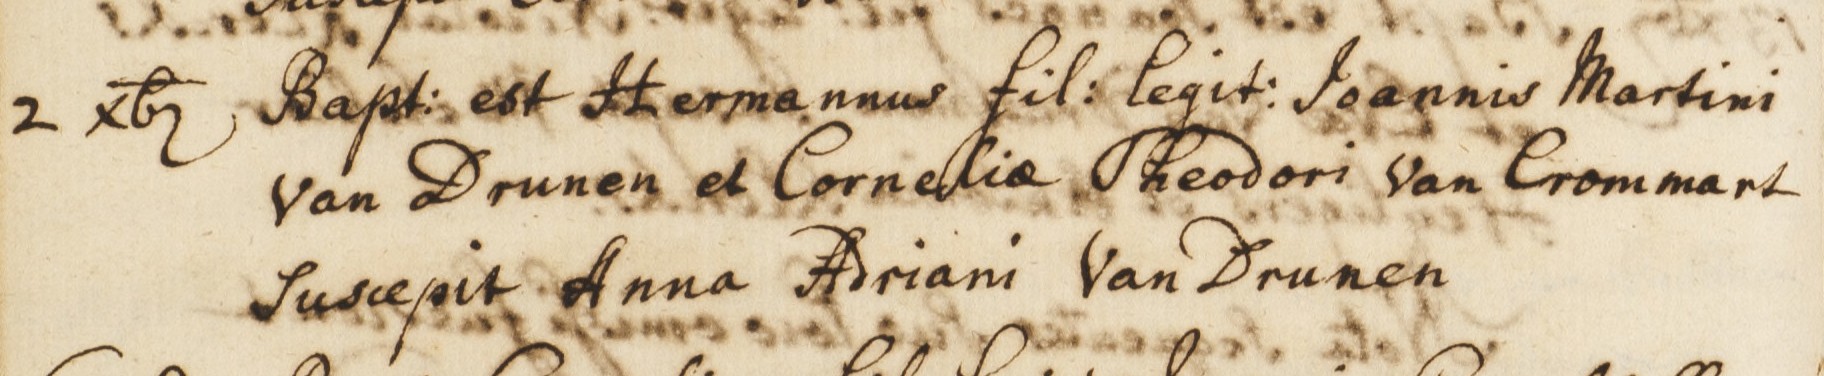 2 xbr Bapt: est Hermannus fil: legit: Joannis Martini
van Drunen et Corneliæ Theodori van Crommart
Suscepit Anna Adriani Van Drunen